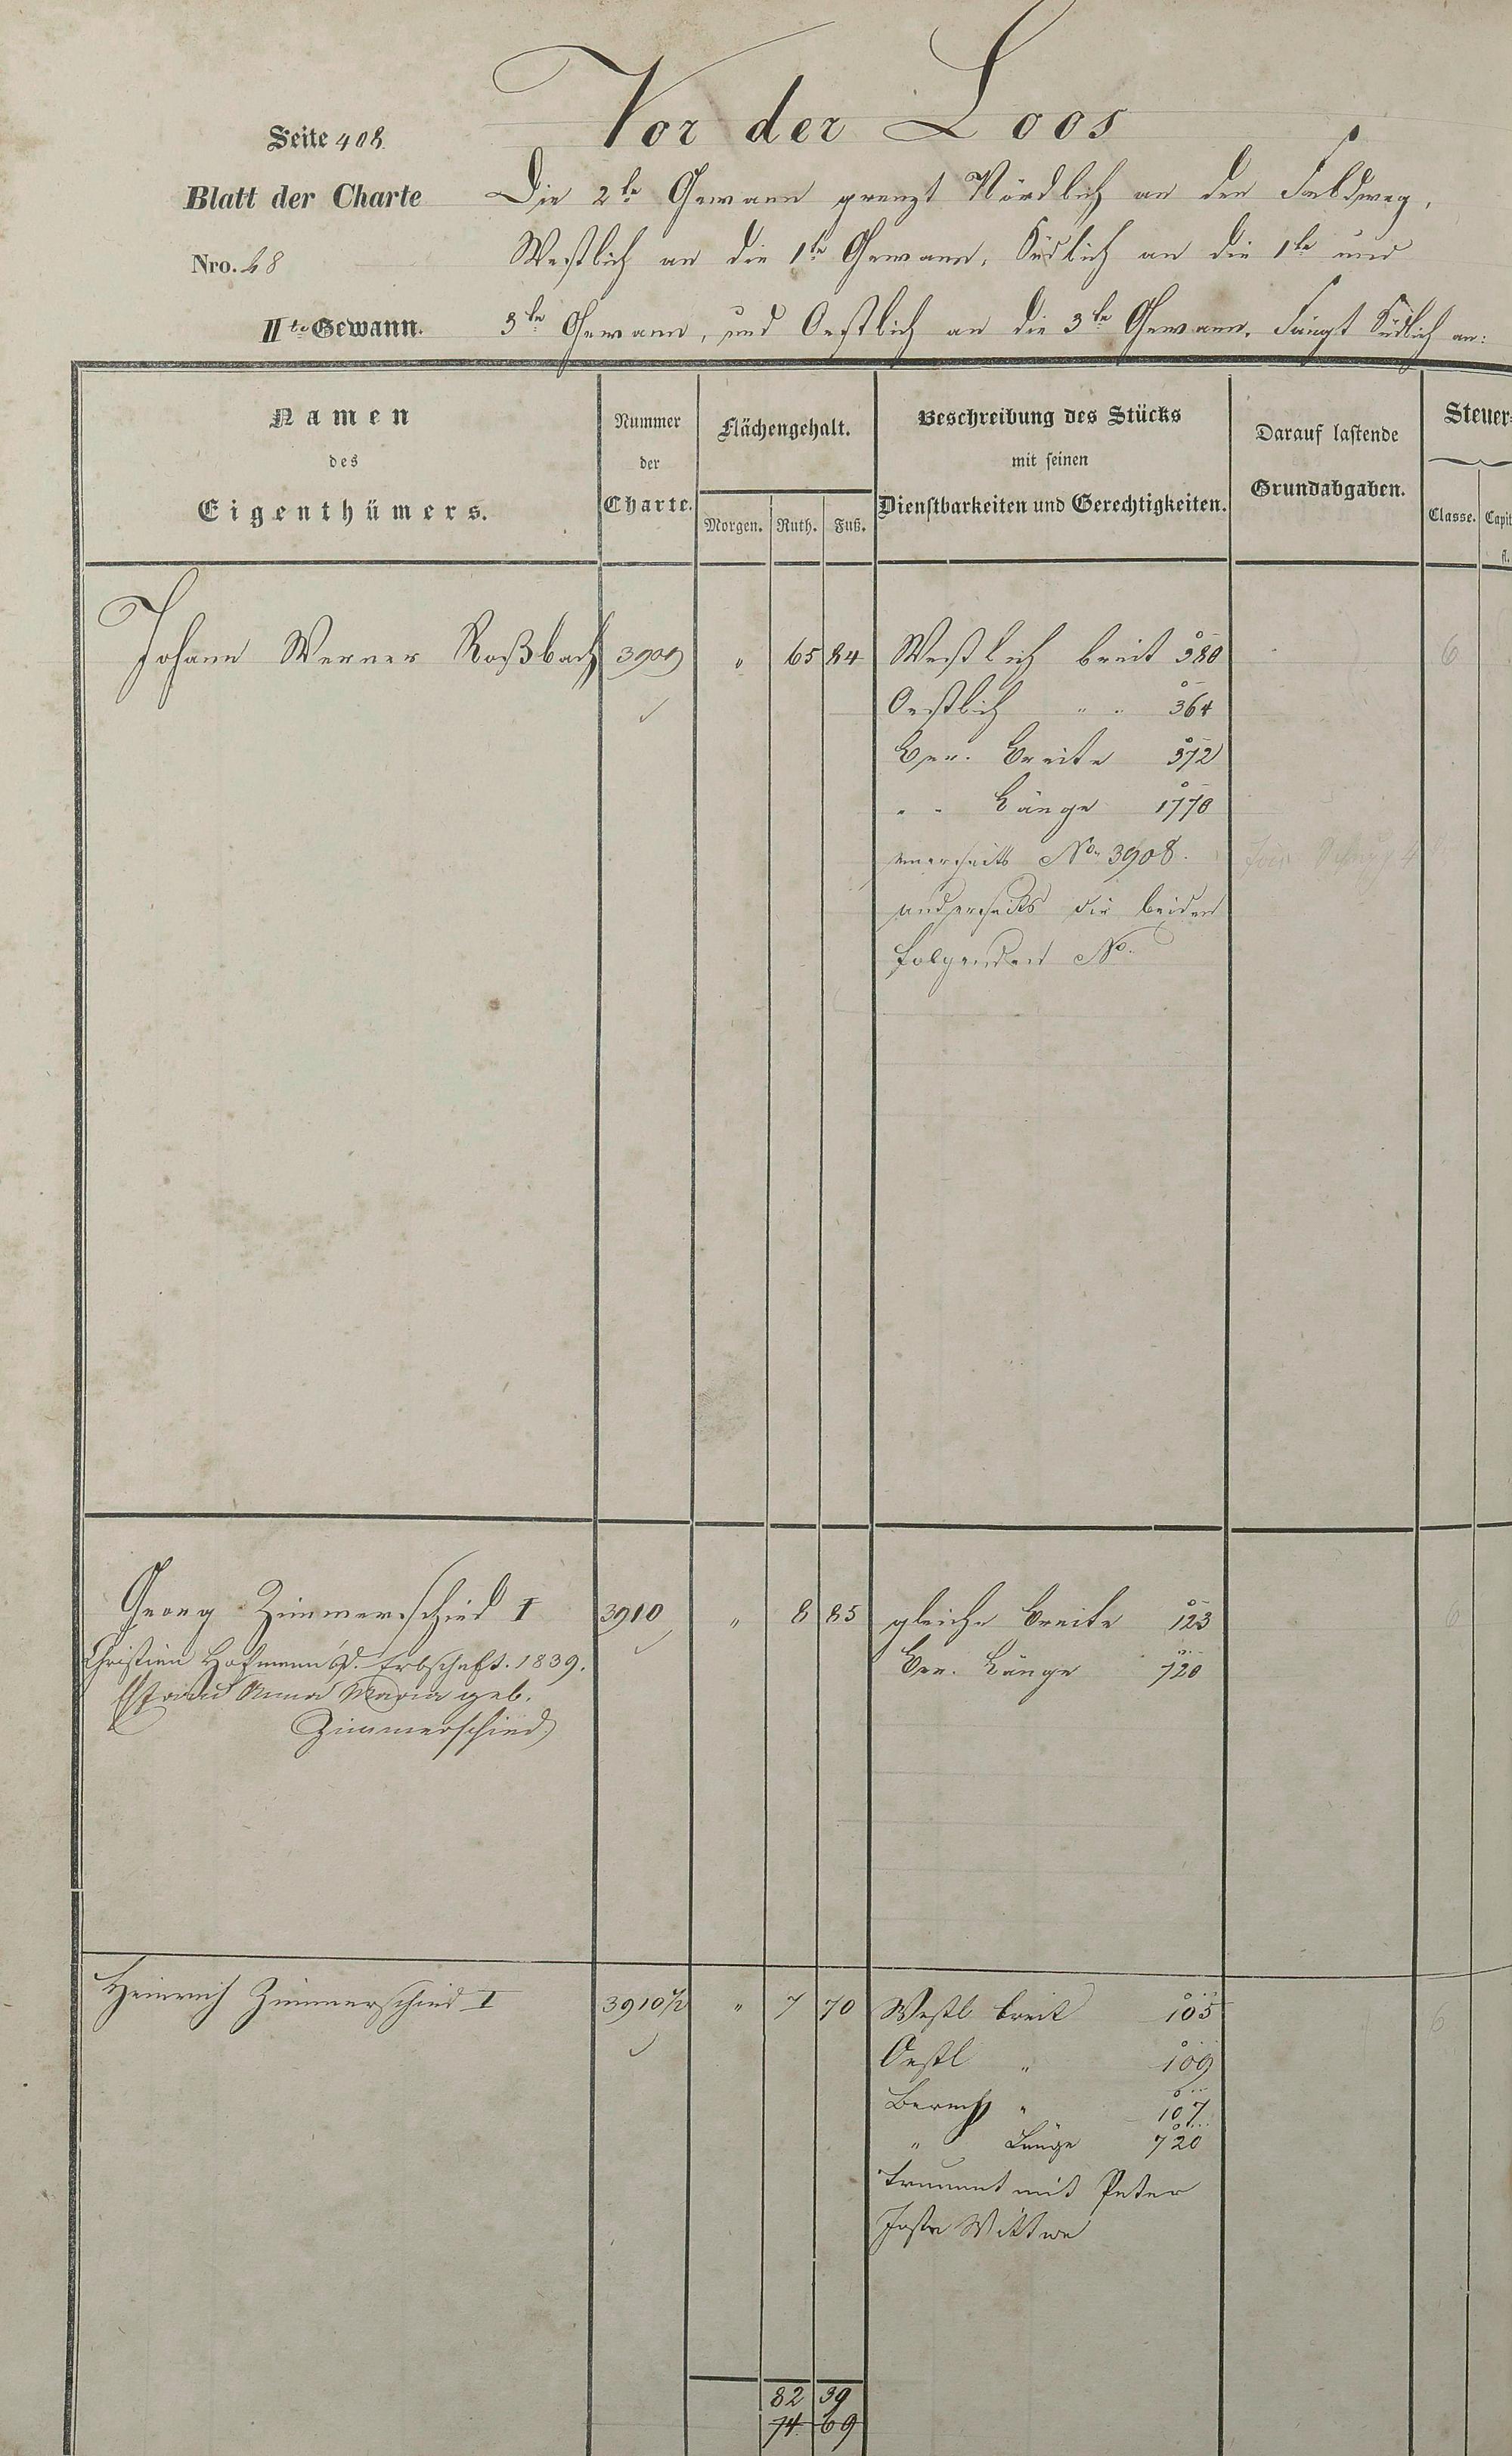 Vor der Loos
Seite 408.
Blatt der Charte
Nro. 48
IIte Gewann.
Die 2te Gewann grenzt Nördlich an den Feldweg,
Westlich an die 1te Gewann, Südlich an die 1te und
3te Gewann, und Oestlich an die 3te Gewann. Fängt Südlich an:
Namen
des
Eigenthümers.
Nummer
der
Charte.
Flächengehalt.
Morgen. Ruth. Fuß.
Beschreibung des Stücks
mit seinen
Dienstbarkeiten und Gerechtigkeiten.
Darauf lastende
Grundabgaben.
Steuer-
Classe. Capit
fl.
Johann Werner Roßbach 3909 " 65 84 Westlich breit 380 6
Oestlich " " 364
Ber. Breite 372
" " Länge 1770
einerseits No. 3908.
anderseits die beiden
folgenden No.
Georg Zimmerschied I 3910 " 8 85 gleiche Breite 123 6
Christian Hofmann Erbschaft. 1839. Ber. Länge 720
Ehefrau Anna Maria geb.
Zimmerschied
Heinrich Zimmerschied I 3910½ " 7 70 Westl breit 105 6
Oestl " 109
Berech " 107
" Länge 720
trennt mit Peter
Wittwe
82 39
74 69